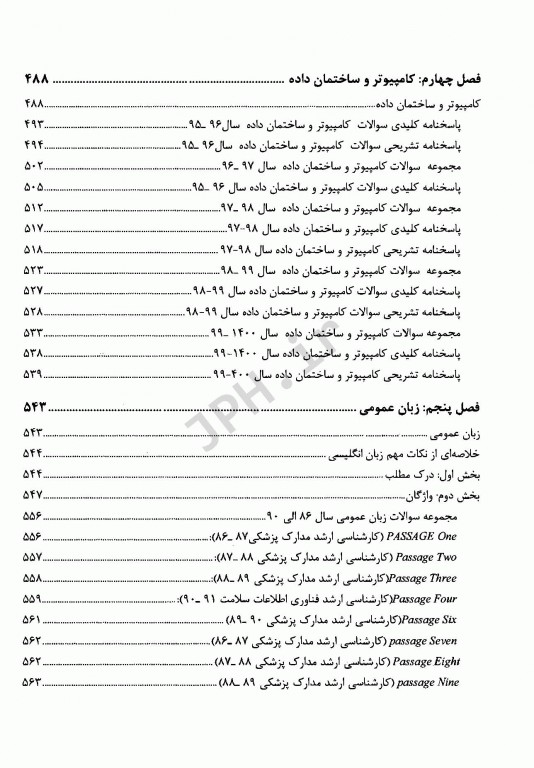 فصل چهارم: کامپیوتر و ساختمان داده ........ ۴۸۸
کامپیوتر و ساختمان داده ........ ۴۸۸
پاسخنامه کلیدی سوالات کامپیوتر و ساختمان داده سال۹۶ ـ۹۵ ........ ۴۹۳
پاسخنامه تشریحی سوالات کامپیوتر و ساختمان داده سال۹۶ ـ۹۵ ........ ۴۹۴
مجموعه سوالات کامپیوتر و ساختمان داده سال ۹۷ ـ۹۶ ........ ۵۰۲
پاسخنامه کلیدی سوالات کامپیوتر و ساختمان داده سال ۹۶ ـ۹۵ ........ ۵۰۵
مجموعه سوالات کامپیوتر و ساختمان داده سال ۹۸ ـ۹۷ ........ ۵۱۲
پاسخنامه کلیدی سوالات کامپیوتر و ساختمان داده سال ۹۸-۹۷ ........ ۵۱۷
پاسخنامه تشریحی سوالات کامپیوتر و ساختمان داده سال ۹۸-۹۷ ........ ۵۱۸
مجموعه سوالات کامپیوتر و ساختمان داده سال ۹۹ ـ۹۸ ........ ۵۲۳
پاسخنامه کلیدی سوالات کامپیوتر و ساختمان داده سال ۹۹-۹۸ ........ ۵۲۷
پاسخنامه تشریحی سوالات کامپیوتر و ساختمان داده سال ۹۹-۹۸ ........ ۵۲۸
مجموعه سوالات کامپیوتر و ساختمان داده سال ۱۴۰۰ ـ۹۹ ........ ۵۳۳
پاسخنامه کلیدی سوالات کامپیوتر و ساختمان داده سال ۱۴۰۰-۹۹ ........ ۵۳۸
پاسخنامه تشریحی سوالات کامپیوتر و ساختمان داده سال ۴۰۰-۹۹ ........ ۵۳۹
فصل پنجم: زبان عمومی ........ ۵۴۳
زبان عمومی ........ ۵۴۳
خلاصه‌ای از نکات مهم زبان انگلیسی ........ ۵۴۴
بخش اول: درک مطلب ........ ۵۴۴
بخش دوم- واژگان ........ ۵۴۷
مجموعه سوالات زبان عمومی سال ۸۶ الی ۹۰ ........ ۵۵۶
PASSAGE One (کارشناسی ارشد مدارک پزشکی۸۷ ـ۸۶): ........ ۵۵۶
Passage Two (کارشناسی ارشد مدارک پزشکی ۸۸ ـ۸۷): ........ ۵۵۷
Passage Three (کارشناسی ارشد مدارک پزشکی ۸۹ ـ۸۸): ........ ۵۵۸
Passage Four (کارشناسی ارشد فناوری اطلاعات سلامت ۹۱ ـ۹۰): ........ ۵۵۹
Passage Six (کارشناسی ارشد مدارک پزشکی ۹۰ ـ۸۹) ........ ۵۶۱
passage Seven (کارشناسی ارشد مدارک پزشکی ۸۷ ـ۸۶) ........ ۵۶۲
Passage Eight (کارشناسی ارشد مدارک پزشکی ۸۸ ـ۸۷) ........ ۵۶۲
passage Nine (کارشناسی ارشد مدارک پزشکی ۸۹ ـ۸۸) ........ ۵۶۳
JPH.ir